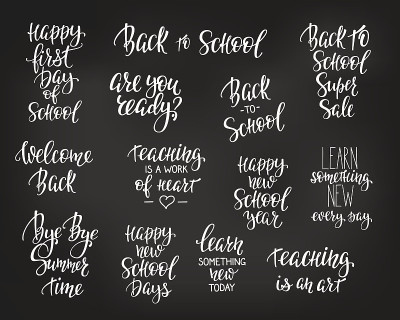 Happy
first
Day
of
School
Back to School
Back to
School
Super
Sale
are you
ready?
Back
-TO-
School
Welcome
Back
Teaching
IS A WORK
of heart
Happy
new
School
year
LEARN
something
NEW
every day
Bye Bye
Summer
time
Happy
new
School
Days
learn
SOMETHING
new
TODAY
Teaching
is an art